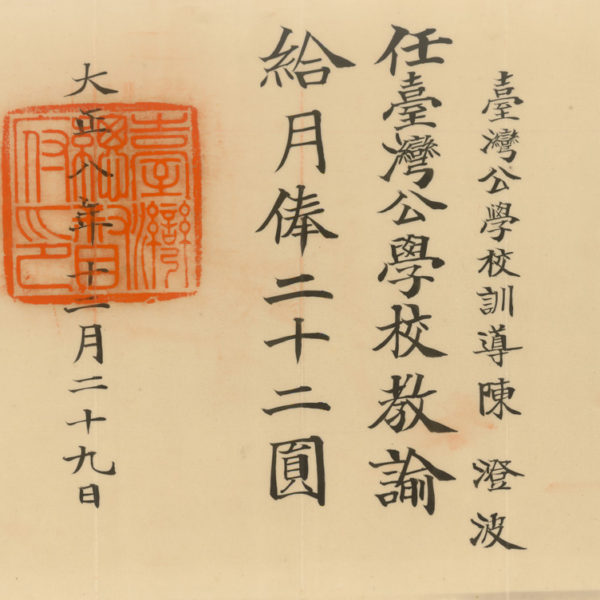 臺灣公學校訓導陳 澄波
任臺灣公學校教諭
給月俸二十二圓
大正八年十二月二十九日
臺灣總督府印